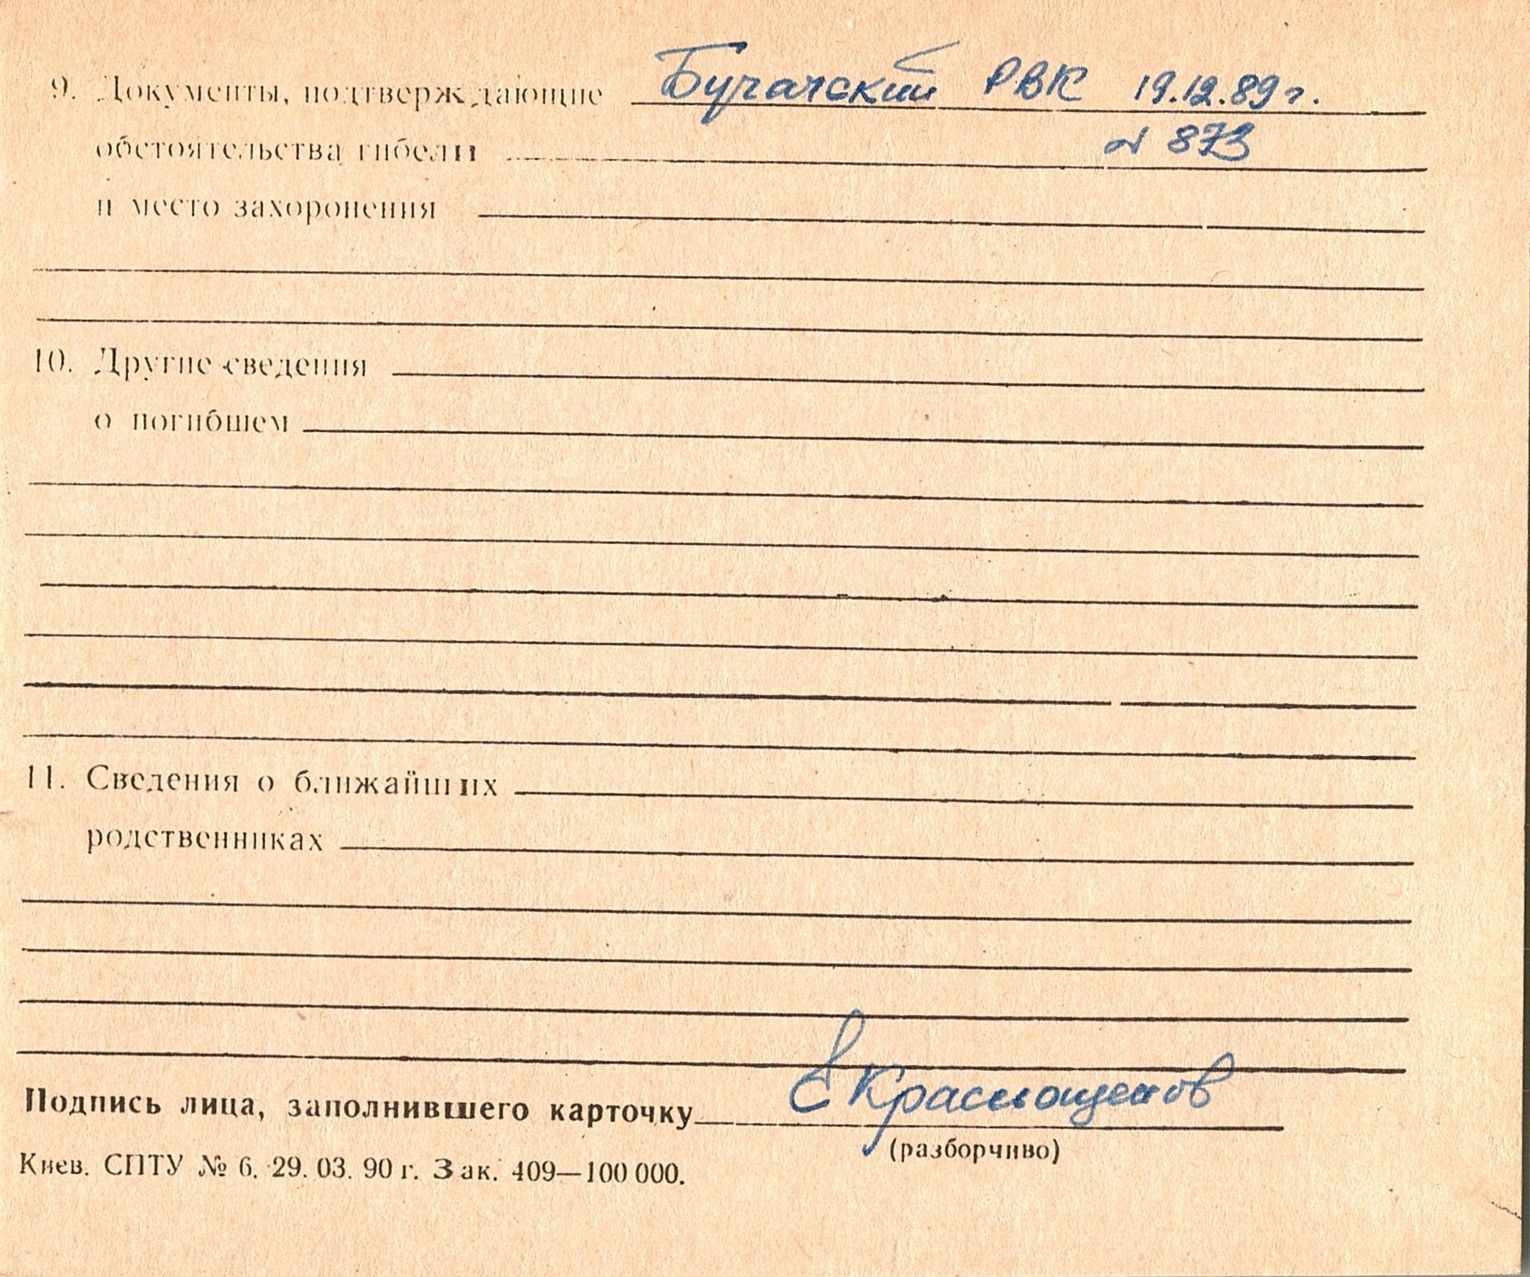 9. Документы, подтверждающие Бучачский РВК 19.12.89 г.
обстоятельства гибели № 873
и место захоронения
10. Другие сведения
о погибшем
11. Сведения о ближайших
родственниках
Подпись лица, заполнившего карточку Е Краснощеков
(разборчиво)
Киев. СПТУ № 6. 29. 03. 90 г. Зак. 409—100 000.